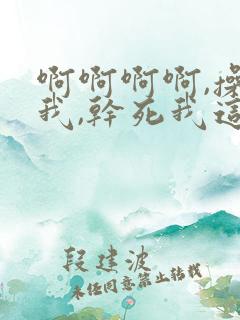 啊啊啊啊,操
我,幹死我這
段建波
未经同意禁止转载